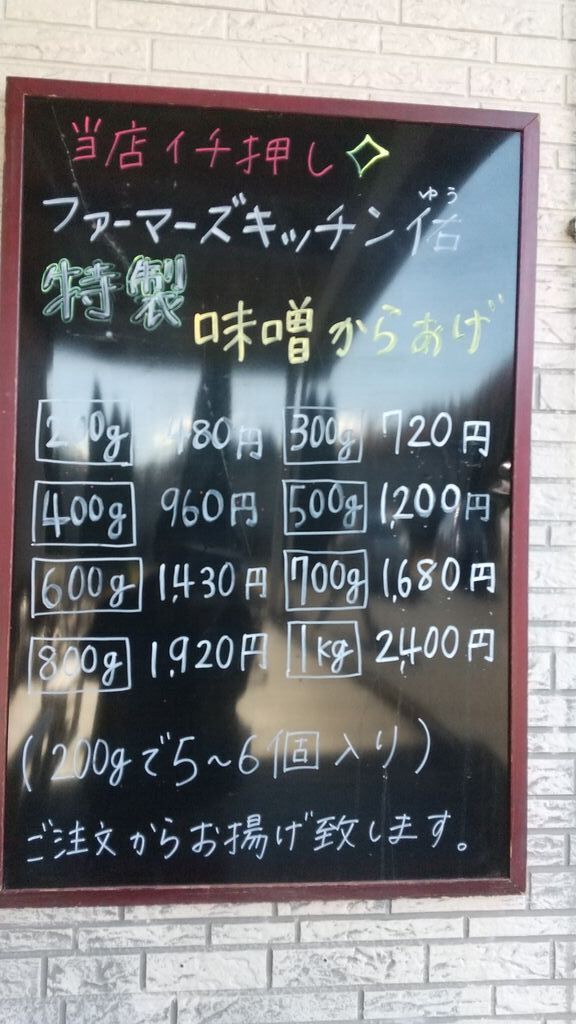 当店イチ押し
ゆう
ファーマーズキッチン佑
特製
味噌からあげ
200g 480円 300g 720円
400g 960円 500g 1,200円
600g 1,430円 700g 1,680円
800g 1,920円 1kg 2,400円
(200gで5~6個入り)
ご注文からお揚げ致します。